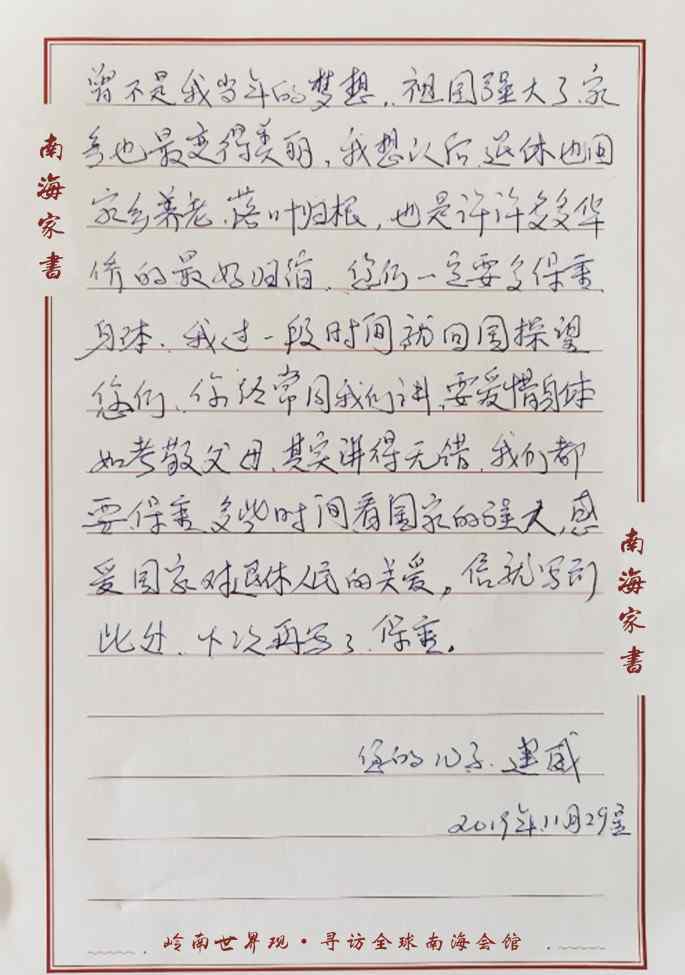 南海家書
曾不是我当年的梦想，祖国强大了，家
乡也最变得美丽，我想以后退休也回
家乡养老，落叶归根，也是许许多多华
侨的最好归宿，您们一定要多保重
身体，我过一段时间就回国探望
您们，你经常同我们讲，要爱惜身体
如孝敬父母，其实讲得无错，我们都
要保重，多些时间看国家的强大，感
受国家对退休人民的关爱，信就写到
此处，下次再写了，保重。
您的儿子，建威
2019年11月29呈
南海家書
岭南世界观·寻访全球南海会馆